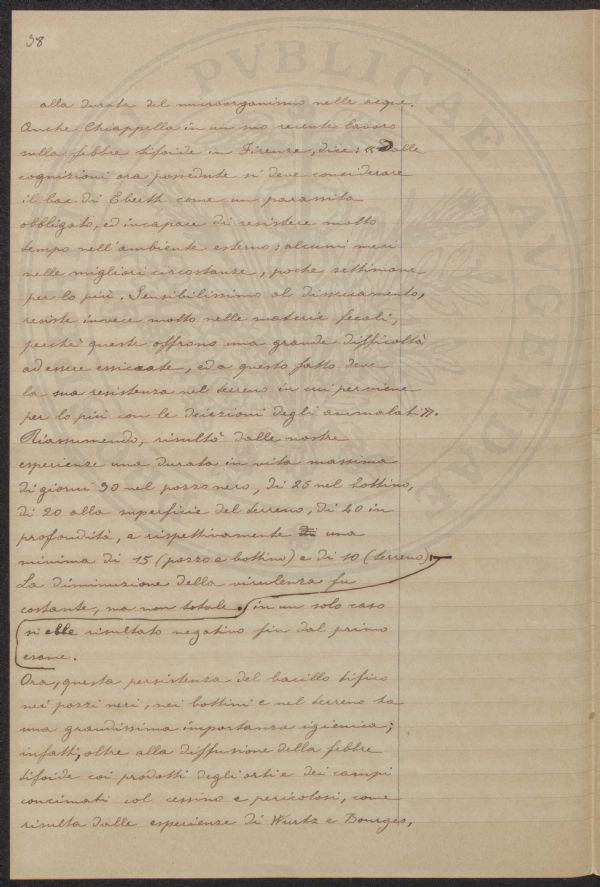 38
PVBLICAE AVGENDAE
alla durata del microorganismo nelle acque.
Anche Chiappella in un suo recente lavoro
sulla febbre tifoide in Firenze, dice: « Dalle
cognizioni ora possedute si deve considerare
il bac. di Eberth come un parassita
obbligato, ed incapace di resistere molto
tempo nell'ambiente esterno: alcuni mesi
nelle migliori circostanze, poche settimane
per lo più. Sensibilissimo al disseccamento,
resiste invece molto nelle materie fecali,
perchè queste offrono una grande difficoltà
ad essere essicate, ed a questo fatto deve
la sua resistenza nel terreno in cui perviene
per lo più con le deiezioni degli ammalati ».
Riassumendo, risultò dalle nostre
esperienze una durata in vita massima
di giorni 30 nel pozzo nero, di 25 nel bottino,
di 20 alla superficie del terreno, di 40 in
profondità, e rispettivamente una
minima di 15 (pozzo e bottino) e di 10 (terreno).
La diminuzione della virulenza fu
costante, ma non totale. in un solo caso
si ebbe risultato negativo fin dal primo
esame.
Ora, questa persistenza del bacillo tifico
nei pozzi neri, nei bottini e nel terreno ha
una grandissima importanza igienica;
infatti, oltre alla diffusione della febbre
tifoide coi prodotti degli orti e dei campi
concimati col cessino e pericolosi, come
risulta dalle esperienze di Wurtz e Bourges,